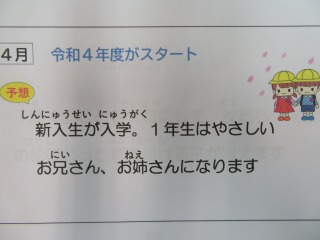 4月 令和4年度がスタート
予想
しんにゅうせい にゅうがく
新入生が入学。1年生はやさしい
にい ねえ
お兄さん、お姉さんになります